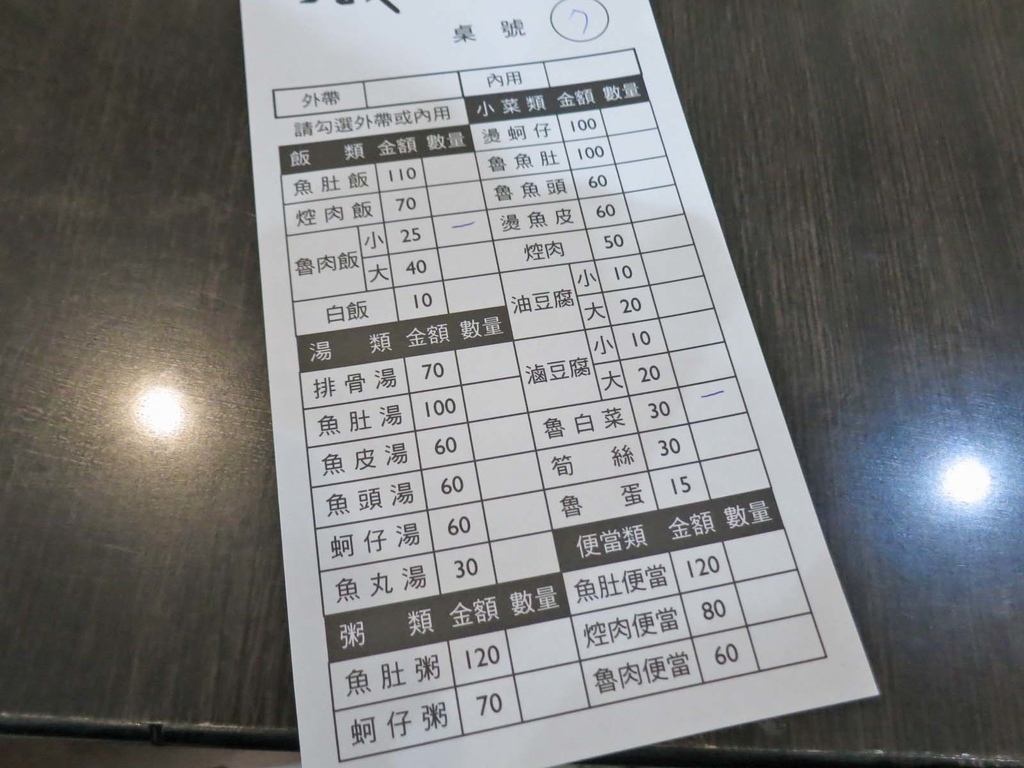 桌號 7
外帶 內用
請勾選外帶或內用
飯類 金額 數量
魚肚飯 110
焢肉飯 70
魯肉飯 小 25 一
大 40
白飯 10
湯類 金額 數量
排骨湯 70
魚肚湯 100
魚皮湯 60
魚頭湯 60
蚵仔湯 60
魚丸湯 30
粥類 金額 數量
魚肚粥 120
蚵仔粥 70
小菜類 金額 數量
燙蚵仔 100
魯魚肚 100
魯魚頭 60
燙魚皮 60
焢肉 50
油豆腐 小 10
大 20
滷豆腐 小 10
大 20
魯白菜 30 一
筍絲 30
魯蛋 15
便當類 金額 數量
魚肚便當 120
焢肉便當 80
魯肉便當 60